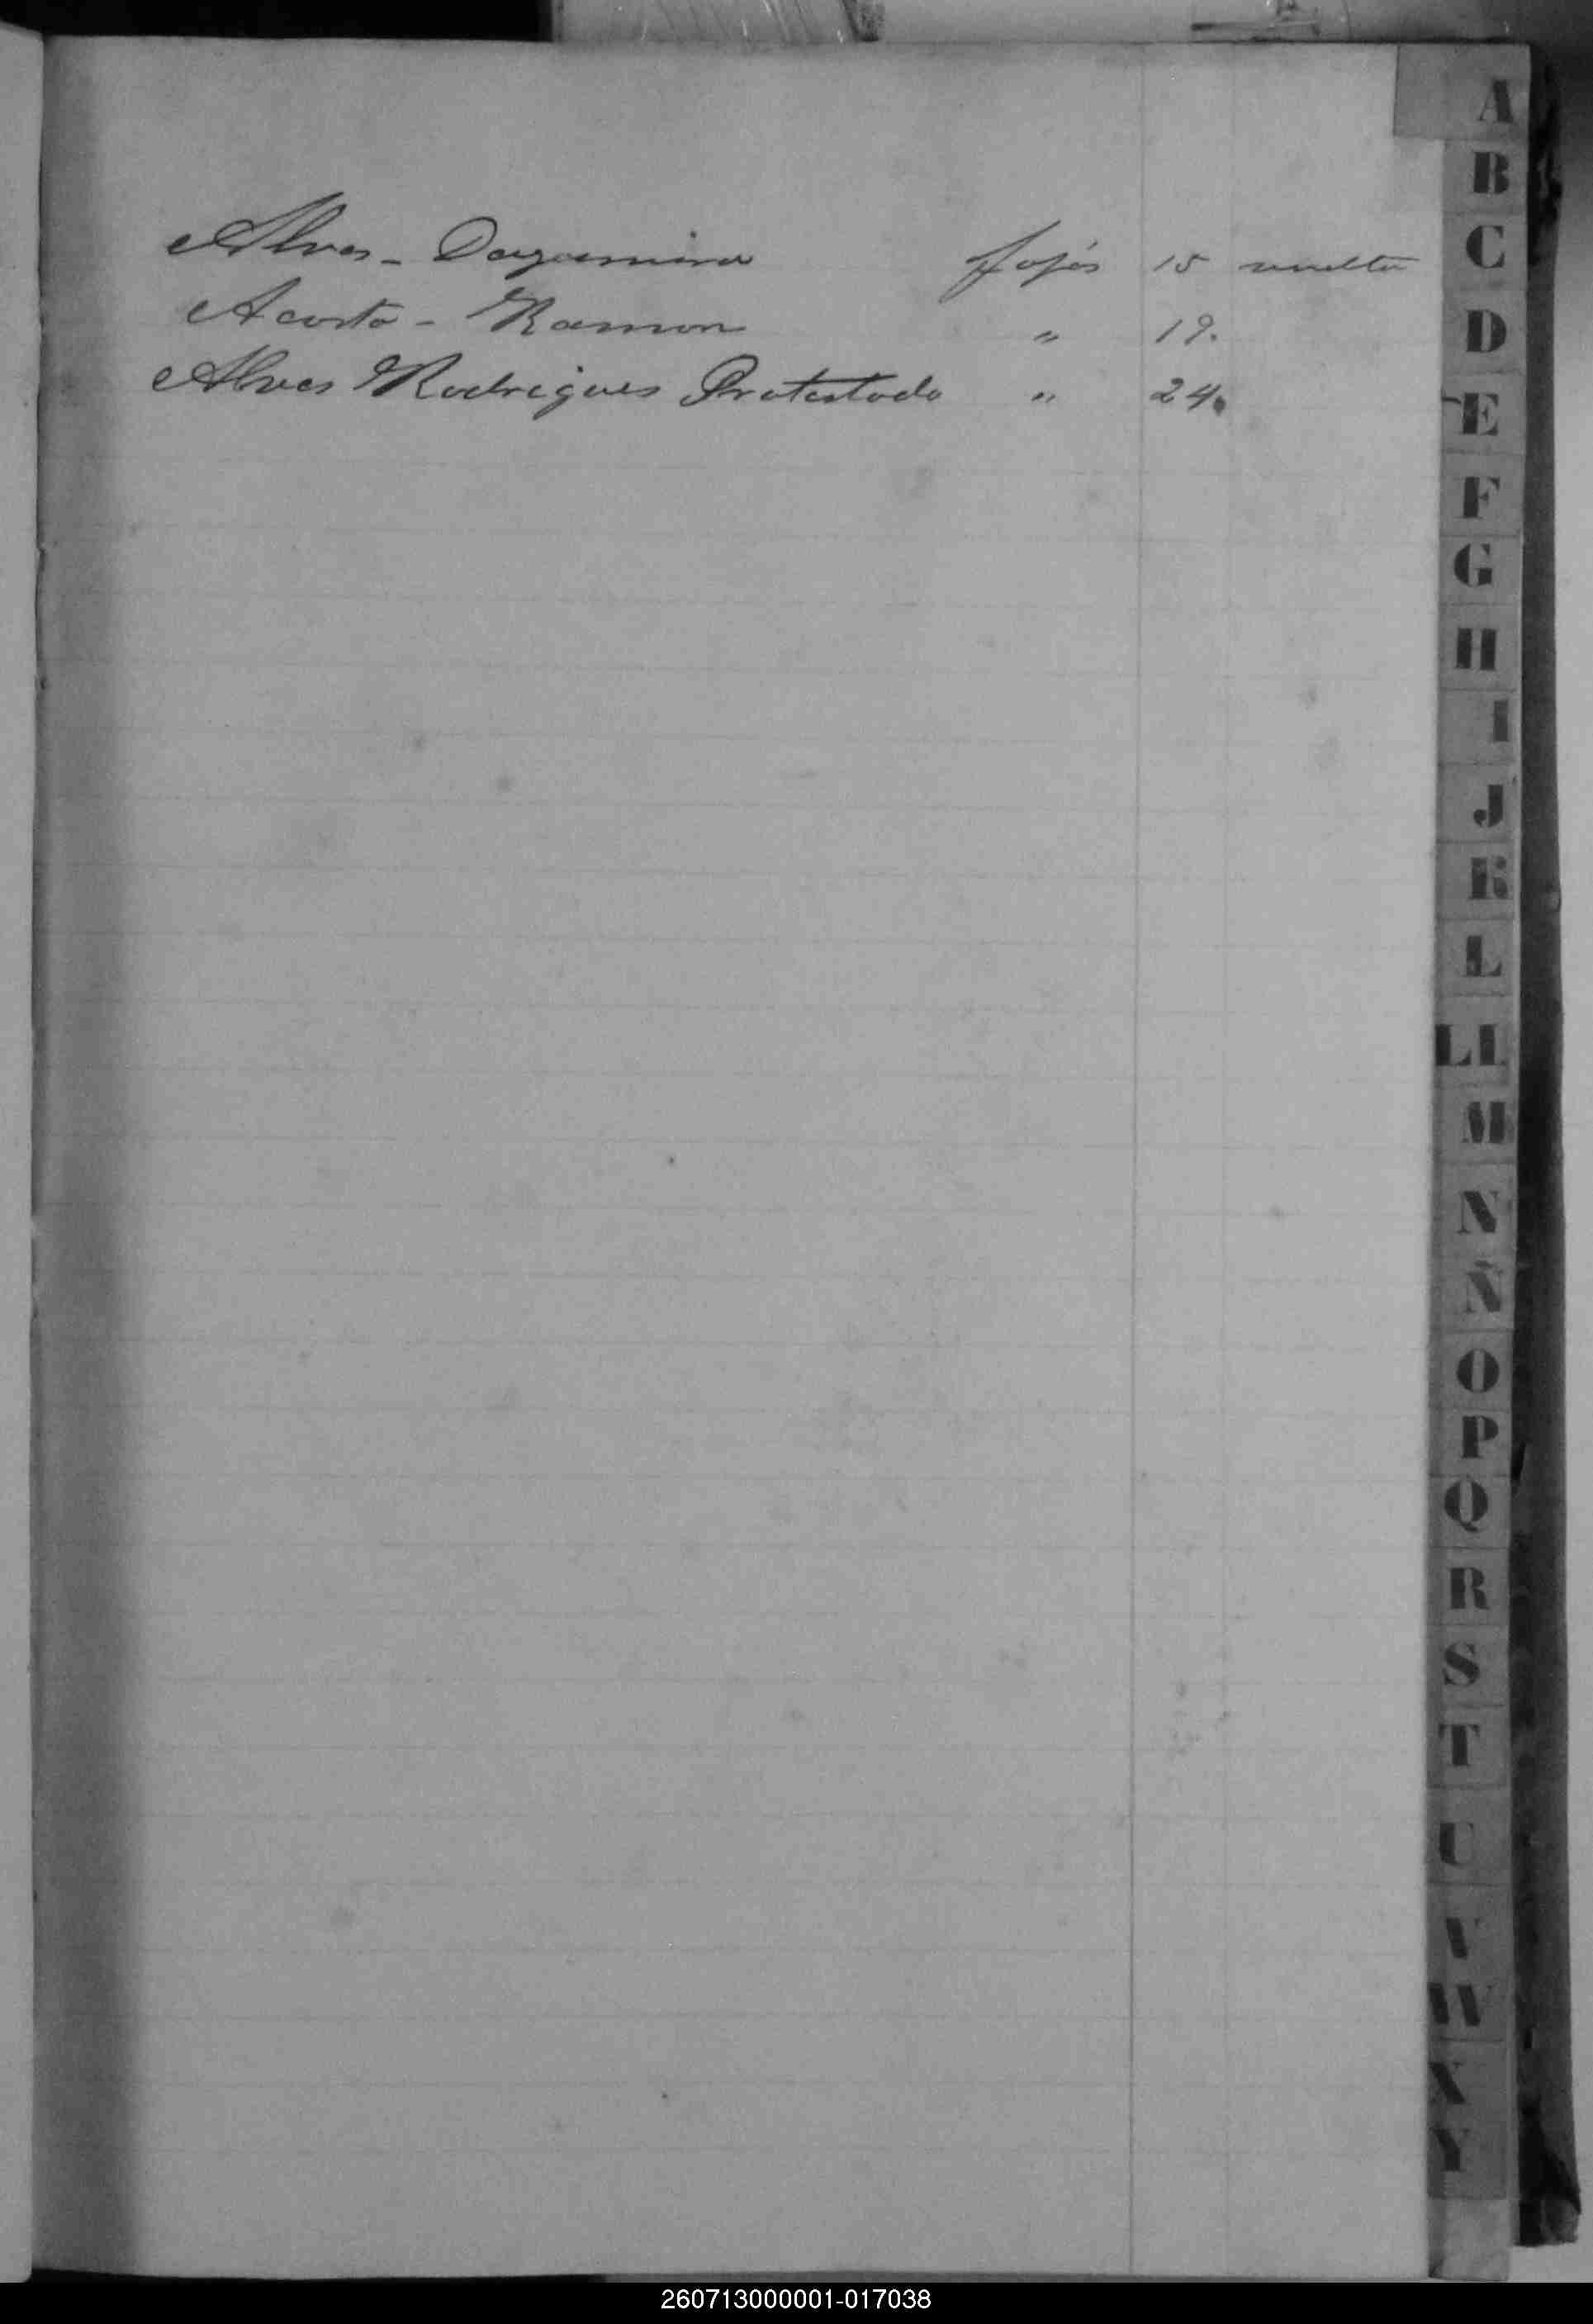 Alves - Dayamira fojas 15 vuelta
Acosta - Ramon " 19.
Alves Rodrigues Protestado " 24.
A
B
C
D
E
F
G
H
I
J
K
L
LL
M
N
Ñ
O
P
Q
R
S
T
U
V
W
X
Y
260713000001-017038